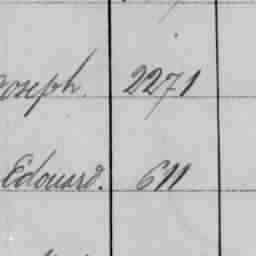 Joseph. 2271
Edouard. 611